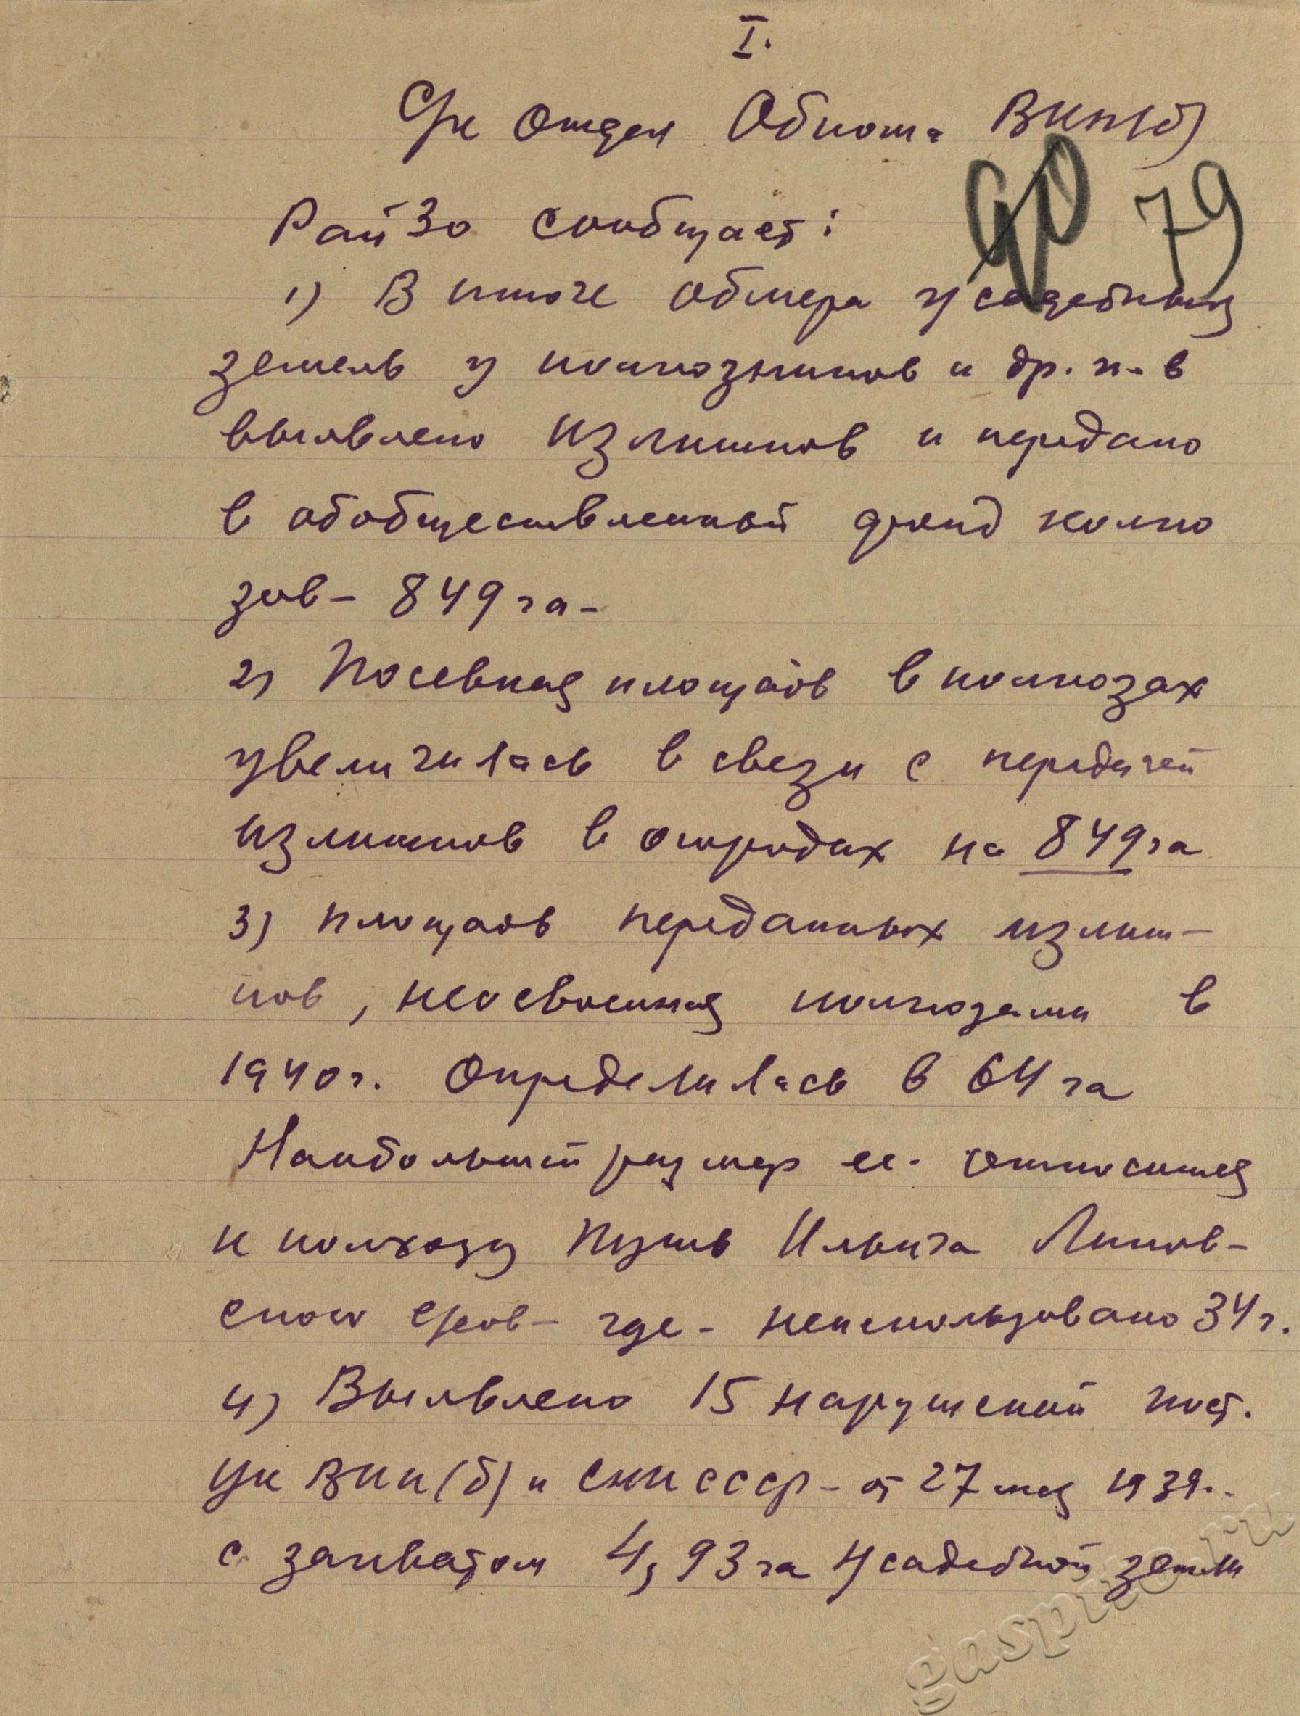 I.
С/х отдел Обкома ВКП(б)
90 79
РайЗо сообщает:
1) В итоге обмера усадебных
земель у колхозников и др. х-в
выявлено излишков и передано
в обобществленный фонд колхо
зов – 849 га –
2) Посевная площадь в колхозах
увеличилась в связи с передачей
излишков в огородах на 849 га
3) площадь переданных излиш-
ков, неосвоенная колхозами в
1940 г. определилась в 64 га
Наибольший размер ее относится
к колхозу Путь Ильича Липов-
ского с/сов – где – неиспользовано 34 г.
4) Выявлено 15 нарушений пост.
ЦК ВКП(б) и СНК СССР – от 27 мая 1939..
с захватом 4,93 га усадебной земли
gaspito.ru